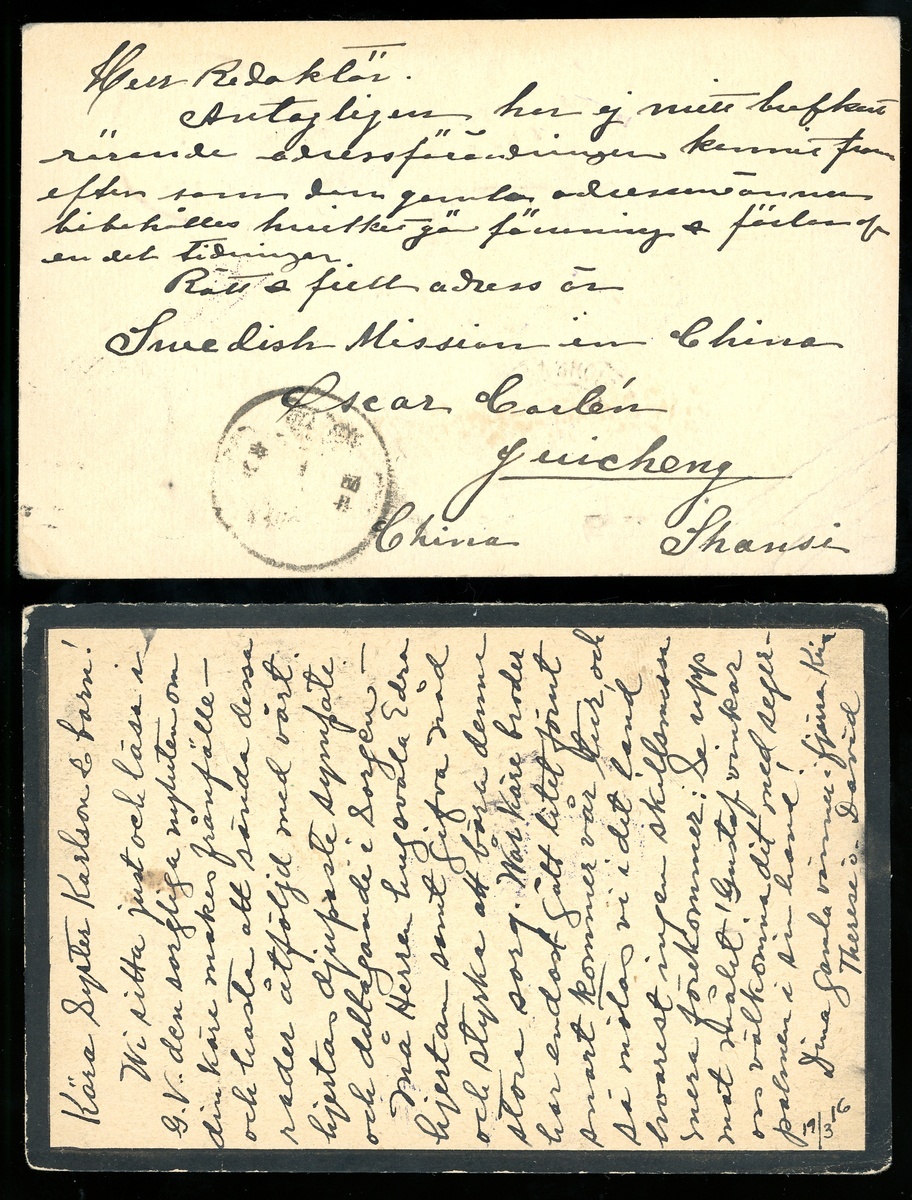 Herr Redaktör.
Antagligen har ej mitt brefkort
rörande adressförändringen kommit fram
efter som den gamla adressen ännu
bibehålles hvilket gör förvirring & förlust af
en del tidningar.
Rätt & full adress är
Swedish Mission in China
Oscar Carlén
Yuicheng
China Shansi
Kära Syster Karlson & barn!
Wi sitta just och läsa i
G.V. den sorgliga nyheten om
din käre makes frånfälle –
och hasta att sända dessa
rader åtföljd med vårt
hjertas djupaste symfati
och deltagande i Sorgen –
Må Herren hugsvala Edra
hjertan samt gifva nåd
och styrka att bära denna
stora sorg. Wår käre broder
har endast gått litet förut
snart kommer vår tur, och
så mötas vi i det land
hvarest ingen skilsmessa
mera förekommer; Se upp
mot målet! Gustaf vinkar
oss välkomna dit med seger-
palmen i sin hand!
Dina gamla vänner
Therese o David
19/3 16